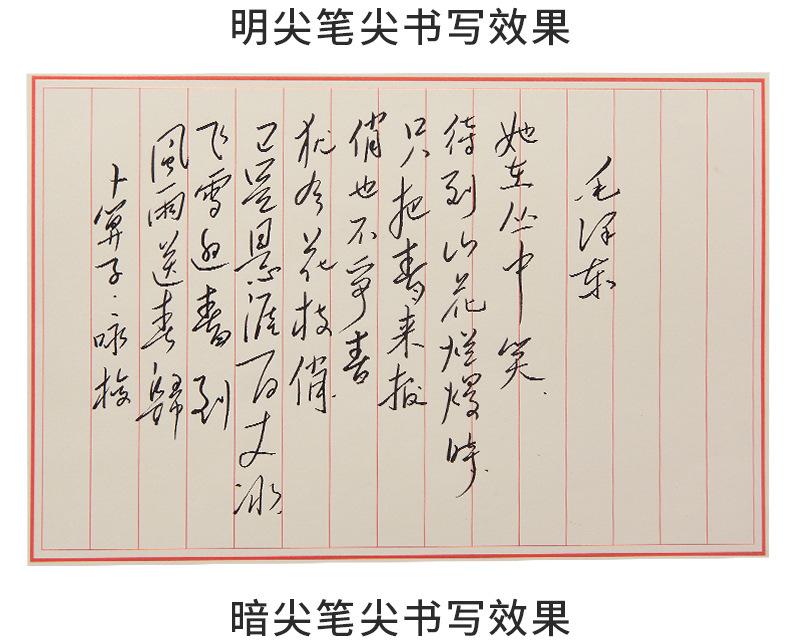 明尖笔尖书写效果
卜算子·咏梅
風雨送春歸
飞雪迎春到
已是悬崖百丈冰.
犹有花枝俏.
俏也不争春
只把春来报
待到山花烂熳時.
她在丛中笑.
毛泽东
暗尖笔尖书写效果